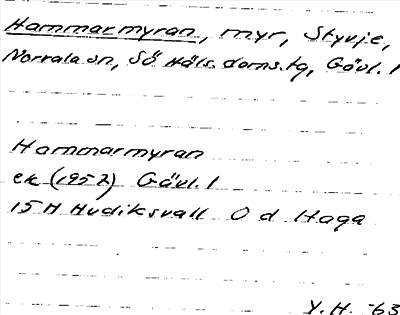 Hammarmyran, myr, Styvje,
Norrala sn, Sö Häls. doms.tg, Gävl. l
Hammarmyran
ek (1952) Gävl. l
15 H Hudiksvall 0 d Haga
Y.H. -63